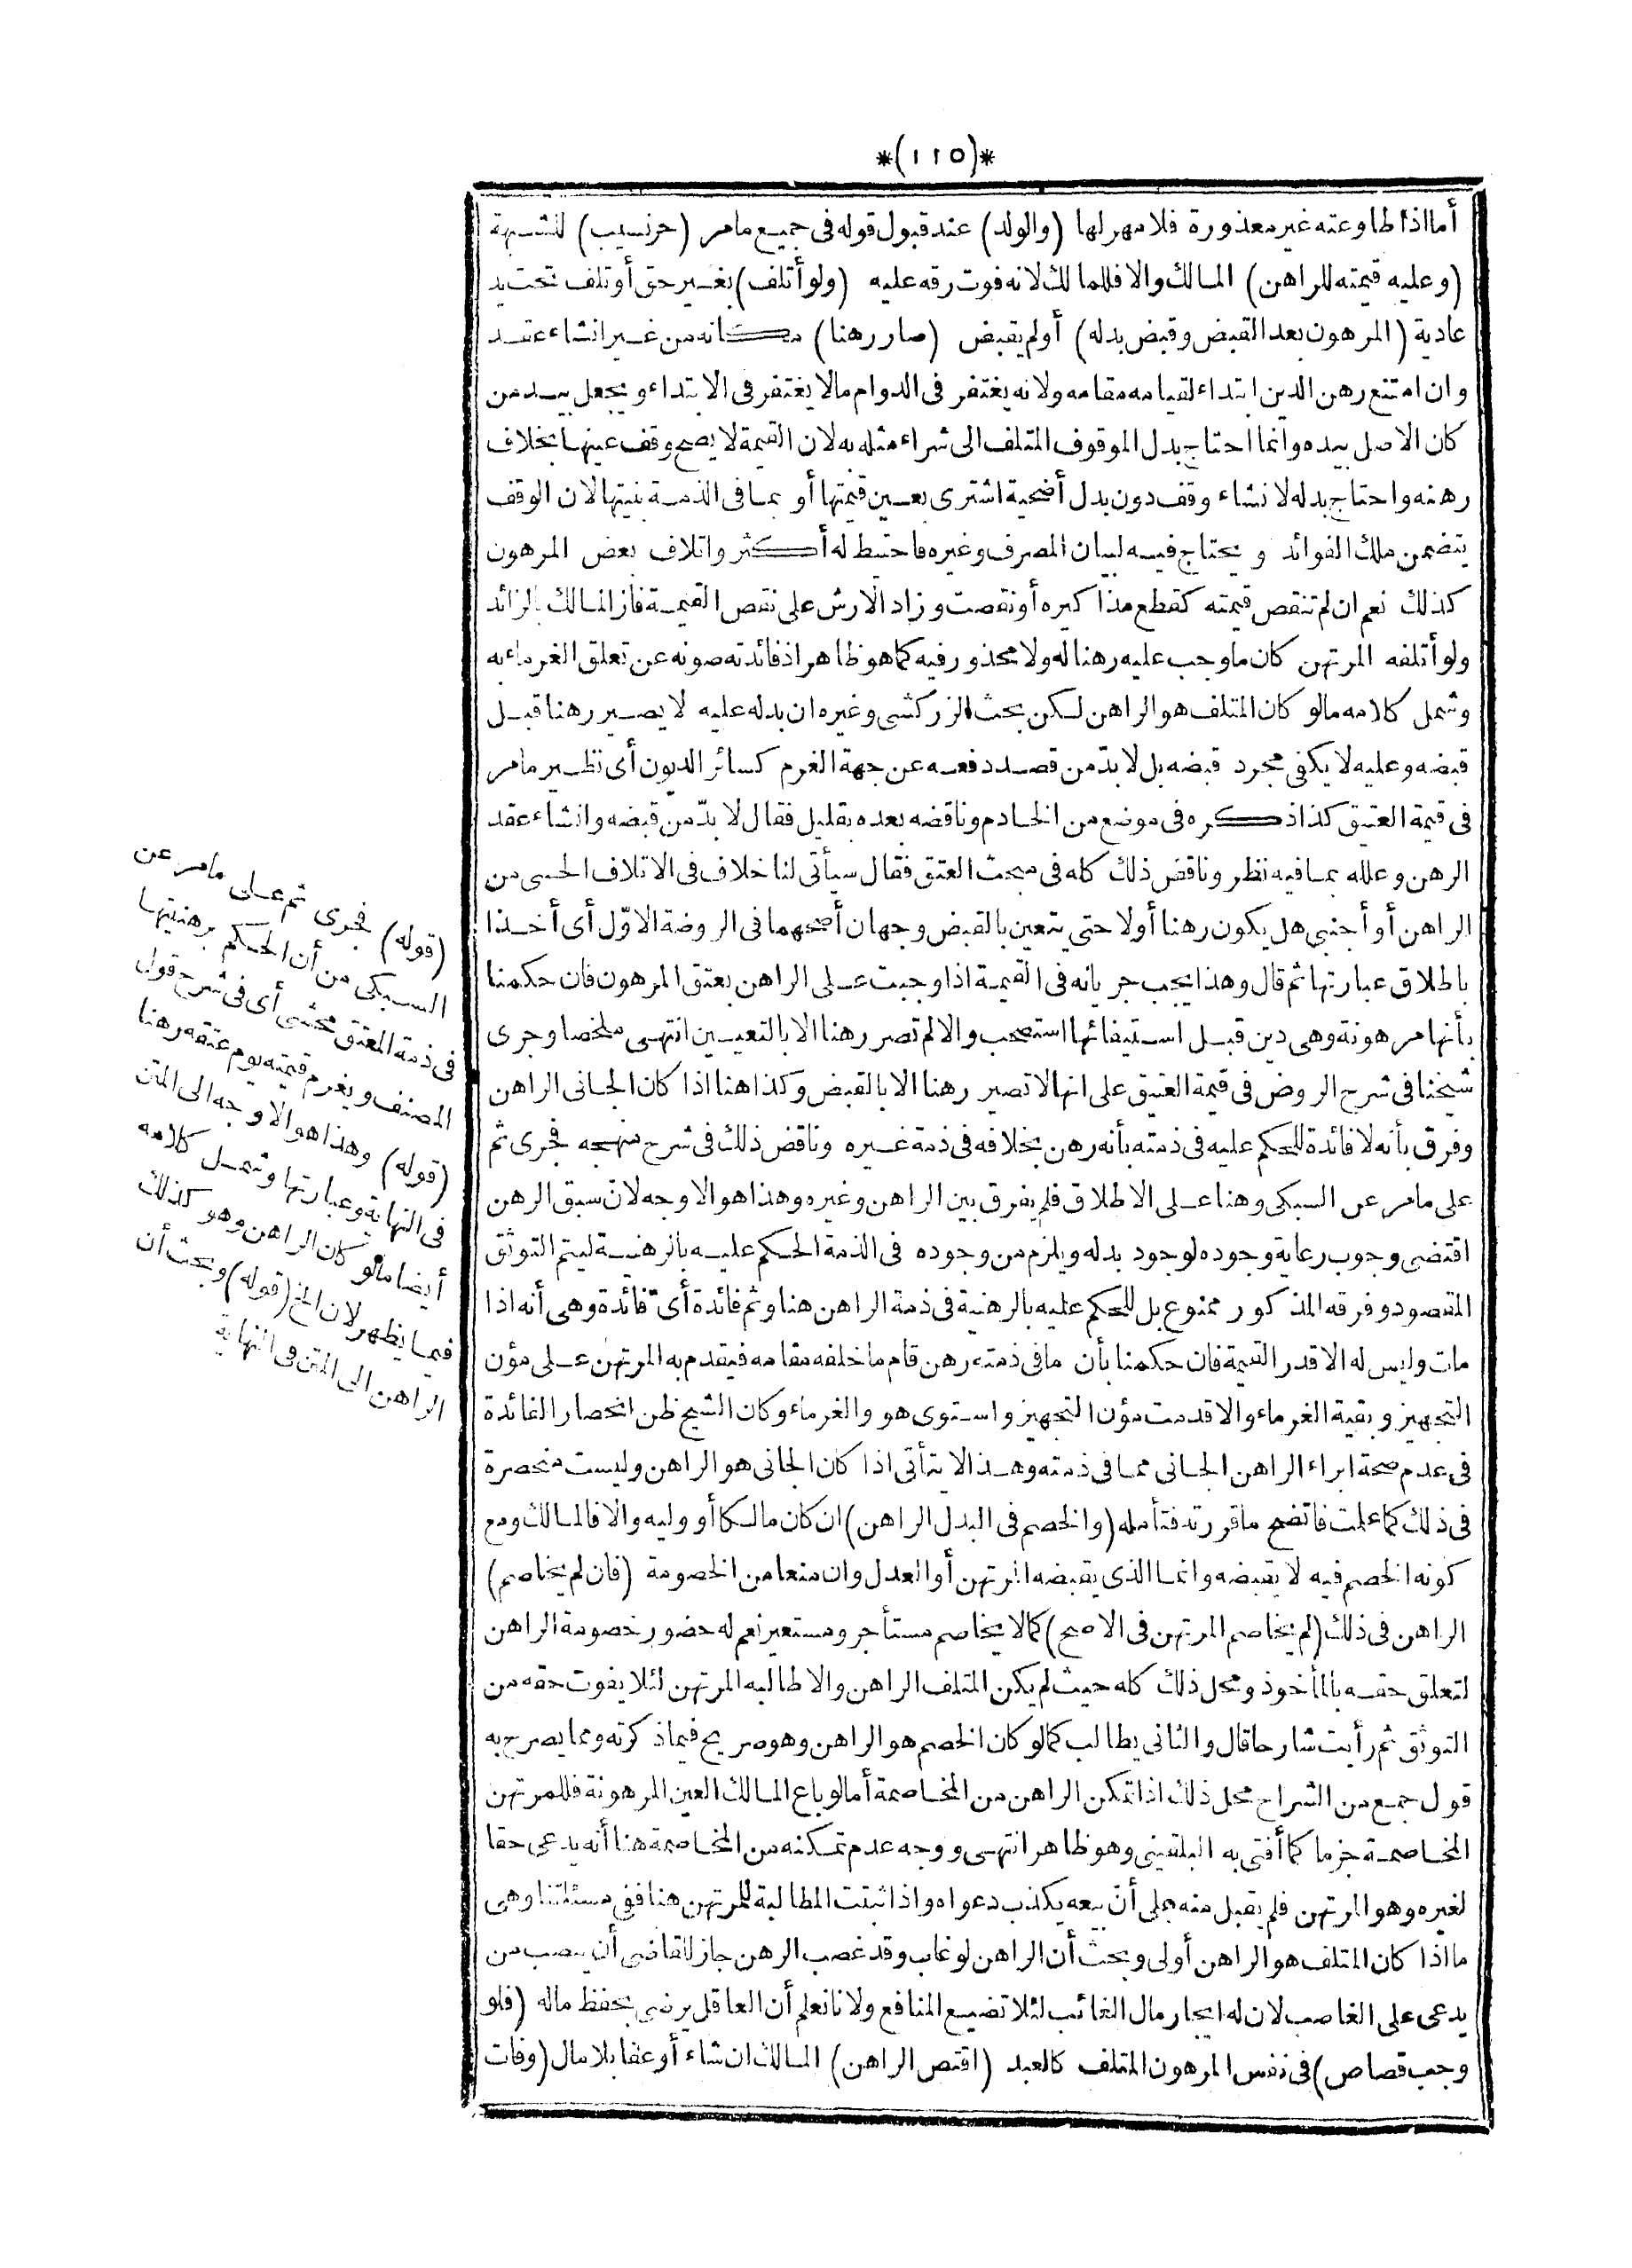 *(١١٥)*
أما اذا طاوعته غير معذورة فلا مهر لها (والولد) عند قبول قوله فى جميع مامر (حر نسيب) للشبهة
(وعليه قيمته للراهن) المالك والا فللمالك لانه فوت رقه عليه (ولو أتلف) بغير حق أو تلف تحت يد
عادية (المرهون بعد القبض وقبض بدله) أو لم يقبض (صار رهنا) مكانه من غير انشاء عقد
وان امتنع رهن الدين ابتداء لقيامه مقامه ولانه يغتفر فى الدوام مالا يغتفر فى الابتداء ويجعل بيد من
كان الاصل بيده وانما احتاج بدل الموقوف المتلف الى شراء مثله به لان القيمة لا يصح وقف عينها بخلاف
رهنه واحتاج بدله لانشاء وقف دون بدل أضحية اشترى بعين قيمتها أو بما فى الذمة بنيتها لان الوقف
يتضمن ملك الفوائد ويحتاج فيه لبيان المصرف وغيره فاحتيط له أكثر واتلاف بعض المرهون
كذلك نعم ان لم تنقص قيمته كقطع مذاكيره أو نقصت وزاد الارش على نقص القيمة فاز المالك بالزائد
ولو أتلفه المرتهن كان ما وجب عليه رهنا له ولا محذور فيه كما هو ظاهر اذ فائدته صونه عن تعلق الغرماء به
وشمل كلامه مالو كان المتلف هو الراهن لكن بحث الزركشى وغيره ان بدله عليه لا يصير رهنا قبل
قبضه وعليه لا يكفى مجرد قبضه بل لا بدّ من قصد دفعه عن جهة الغرم كسائر الديون أى نظير مامر
فى قيمة العتيق كذا ذكره فى موضع من الخادم وناقضه بعده بقليل فقال لا بدّ من قبضه وانشاء عقد
الرهن وعلله بما فيه نظر وناقض ذلك كله فى مبحث العتق فقال سيأتى لنا خلاف فى الاتلاف الحسى من
الراهن أو أجنبى هل يكون رهنا أولا حتى يتعين بالقبض وجهان أصحهما فى الروضة الاوّل أى أخذا
باطلاق عبارتها ثم قال وهذا يجب جريانه فى القيمة اذا وجبت على الراهن بعتق المرهون فان حكمنا
بأنها مرهونة وهى دين قبل استيفائها استصحب والا لم تصر رهنا الا بالتعيين انتهى ملخصا وجرى
شيخنا فى شرح الروض فى قيمة العتيق على انها لا تصير رهنا الا بالقبض وكذا هنا اذا كان الجانى الراهن
وفرق بأنه لا فائدة للحكم عليه فى ذمته بأنه رهن بخلافه فى ذمة غيره وناقض ذلك فى شرح منهجه فجرى ثم
على مامر عن السبكى وهنا على الاطلاق فلم يفرق بين الراهن وغيره وهذا هو الاوجه لانّ سبق الرهن
اقتضى وجوب رعاية وجوده لوجود بدله ويلزم من وجوده فى الذمة الحكم عليه بالرهنية ليتم التوثق
المقصود وفرقه المذكور ممنوع بل للحكم عليه بالرهنية فى ذمة الراهن هنا وثم فائدة أىّ فائدة وهى أنه اذا
مات وليس له الا قدر القيمة فان حكمنا بأن ما فى ذمته رهن قام ما خلفه مقامه فيقدم به المرتهن على مؤن
التجهيز وبقية الغرماء والا قدمت مؤن التجهيز واستوى هو والغرماء وكان الشيخ ظن انحصار الفائدة
فى عدم صحة ابراء الراهن الجانى مما فى ذمته وهذا لا يتأتى اذا كان الجانى هو الراهن وليست منحصرة
فى ذلك كما علمت فاتضح ما قررته فتأمله (والخصم فى البدل الراهن) ان كان مالكا أو وليه والا فالمالك ومع
كونه الخصم فيه لا يقبضه وانما الذى يقبضه المرتهن أو العدل وان منعا من الخصومة (فان لم يخاصم)
الراهن فى ذلك (لم يخاصم المرتهن فى الاصح) كما لا يخاصم مستأجر ومستعير نعم له حضور خصومة الراهن
لتعلق حقه بالمأخوذ ومحل ذلك كله حيث لم يكن المتلف الراهن والا طالبه المرتهن لئلا يفوت حقه من
التوثق ثم رأيت شارحا قال والثانى يطالب كما لو كان الخصم هو الراهن وهو صريح فيما ذكرته ومما يصرح به
قول جمع من الشراح محل ذلك اذا تمكن الراهن من المخاصمة أما لو باع المالك العين المرهونة فللمرتهن
المخاصمة جزما كما أفتى به البلقينى وهو ظاهر انتهى ووجه عدم تمكنه من المخاصمة هنا أنه يدعى حقا
لغيره وهو المرتهن فلم يقبل منه على أنّ بيعه يكذب دعواه واذا ثبتت المطالبة للمرتهن هنا ففى مسئلتنا وهى
ما اذا كان المتلف هو الراهن أولى وبحث أن الراهن لو غاب وقد غصب الرهن جاز للقاضى أن ينصب من
يدعى على الغاصب لان له ايجار مال الغائب لئلا تضيع المنافع ولانا نعلم أن العاقل يرضى بحفظ ماله (فلو
وجب قصاص) فى نفس المرهون المتلف كالعبد (اقتص الراهن) المالك ان شاء أو عفا بلا مال (وفات
(قوله) فجرى ثم على مامر عن
السبكى من أن الحكم برهنيتها
فى ذمة المعتق محشى أى فى شرح قول
المصنف ويغرم قيمته يوم عتقه رهنا
(قوله) وهذا هو الاوجه الى المتن
فى النهاية وعبارتها وشمل كلامه
أيضا مالو كان الراهن وهو كذلك
فيما يظهر لان الخ (قوله) وبحث أن
الراهن الى المتن فى النهاية